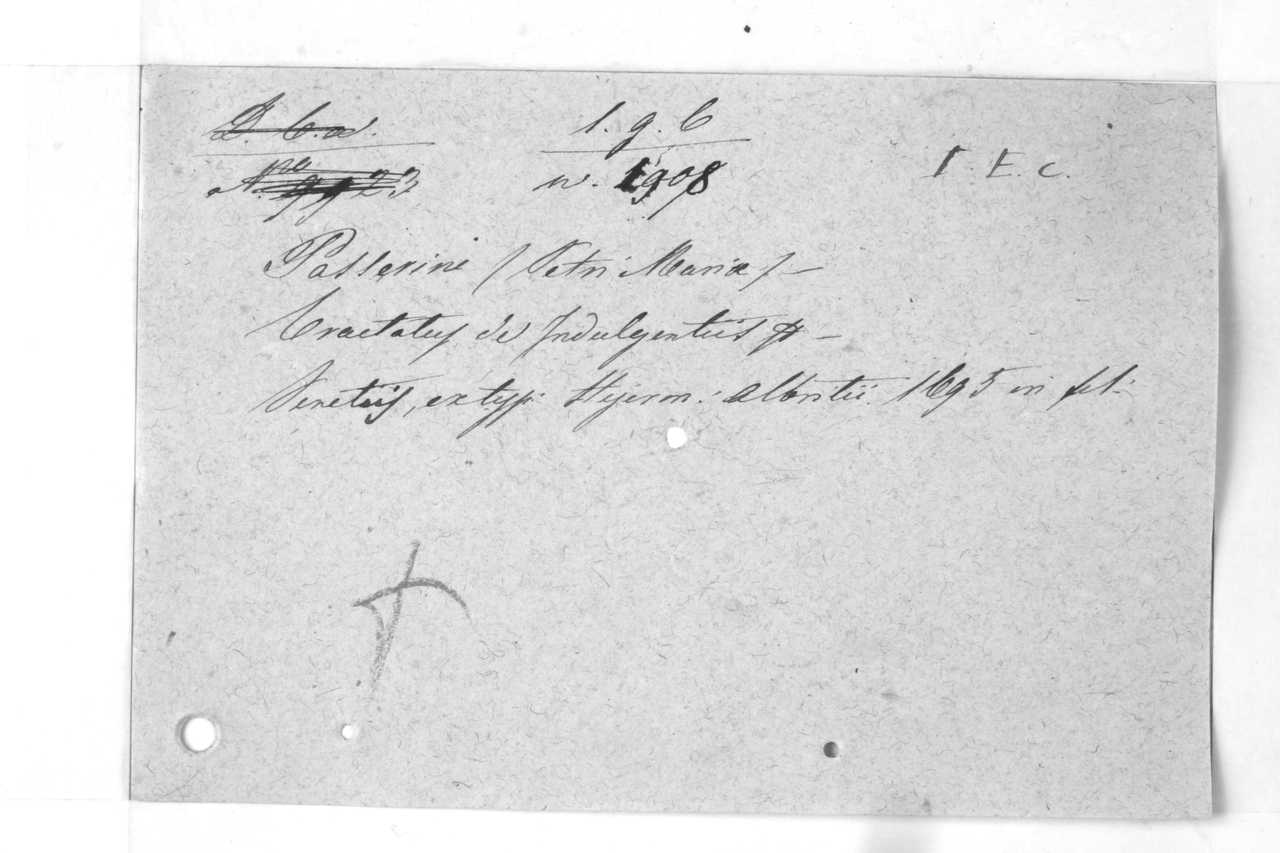 D. b. a. 1. g. 6
N 23 n. 1908 I. E. c.
Passerini / Petri Mariæ / –
Tractatus de Indulgentiis –
Venetiis, ex typ: Hyeron: Albritii 1695 in fol: